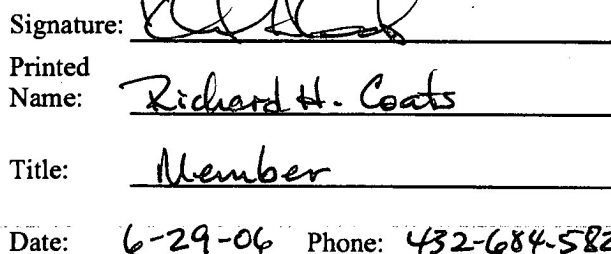 Signature:
Printed
Name: Richard H. Coats
Title: Member
Date: 6-29-06 Phone: 432-684-582